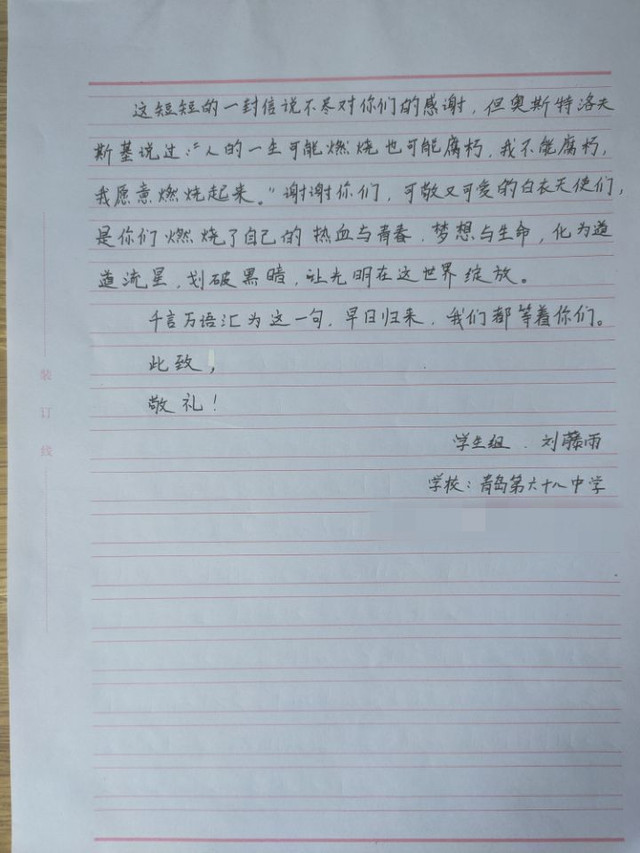 这短短的一封信说不尽对你们的感谢，但奥斯特洛夫
斯基说过:“人的一生可能燃烧也可能腐朽，我不能腐朽，
我愿意燃烧起来。”谢谢你们，可敬又可爱的白衣天使们，
是你们燃烧了自己的热血与青春、梦想与生命，化为道
道流星，划破黑暗，让光明在这世界绽放。
千言万语汇为这一句，早日归来，我们都等着你们。
此致，
敬礼！
学生组 . 刘藤雨
学校：青岛第六十八中学
装
订
线